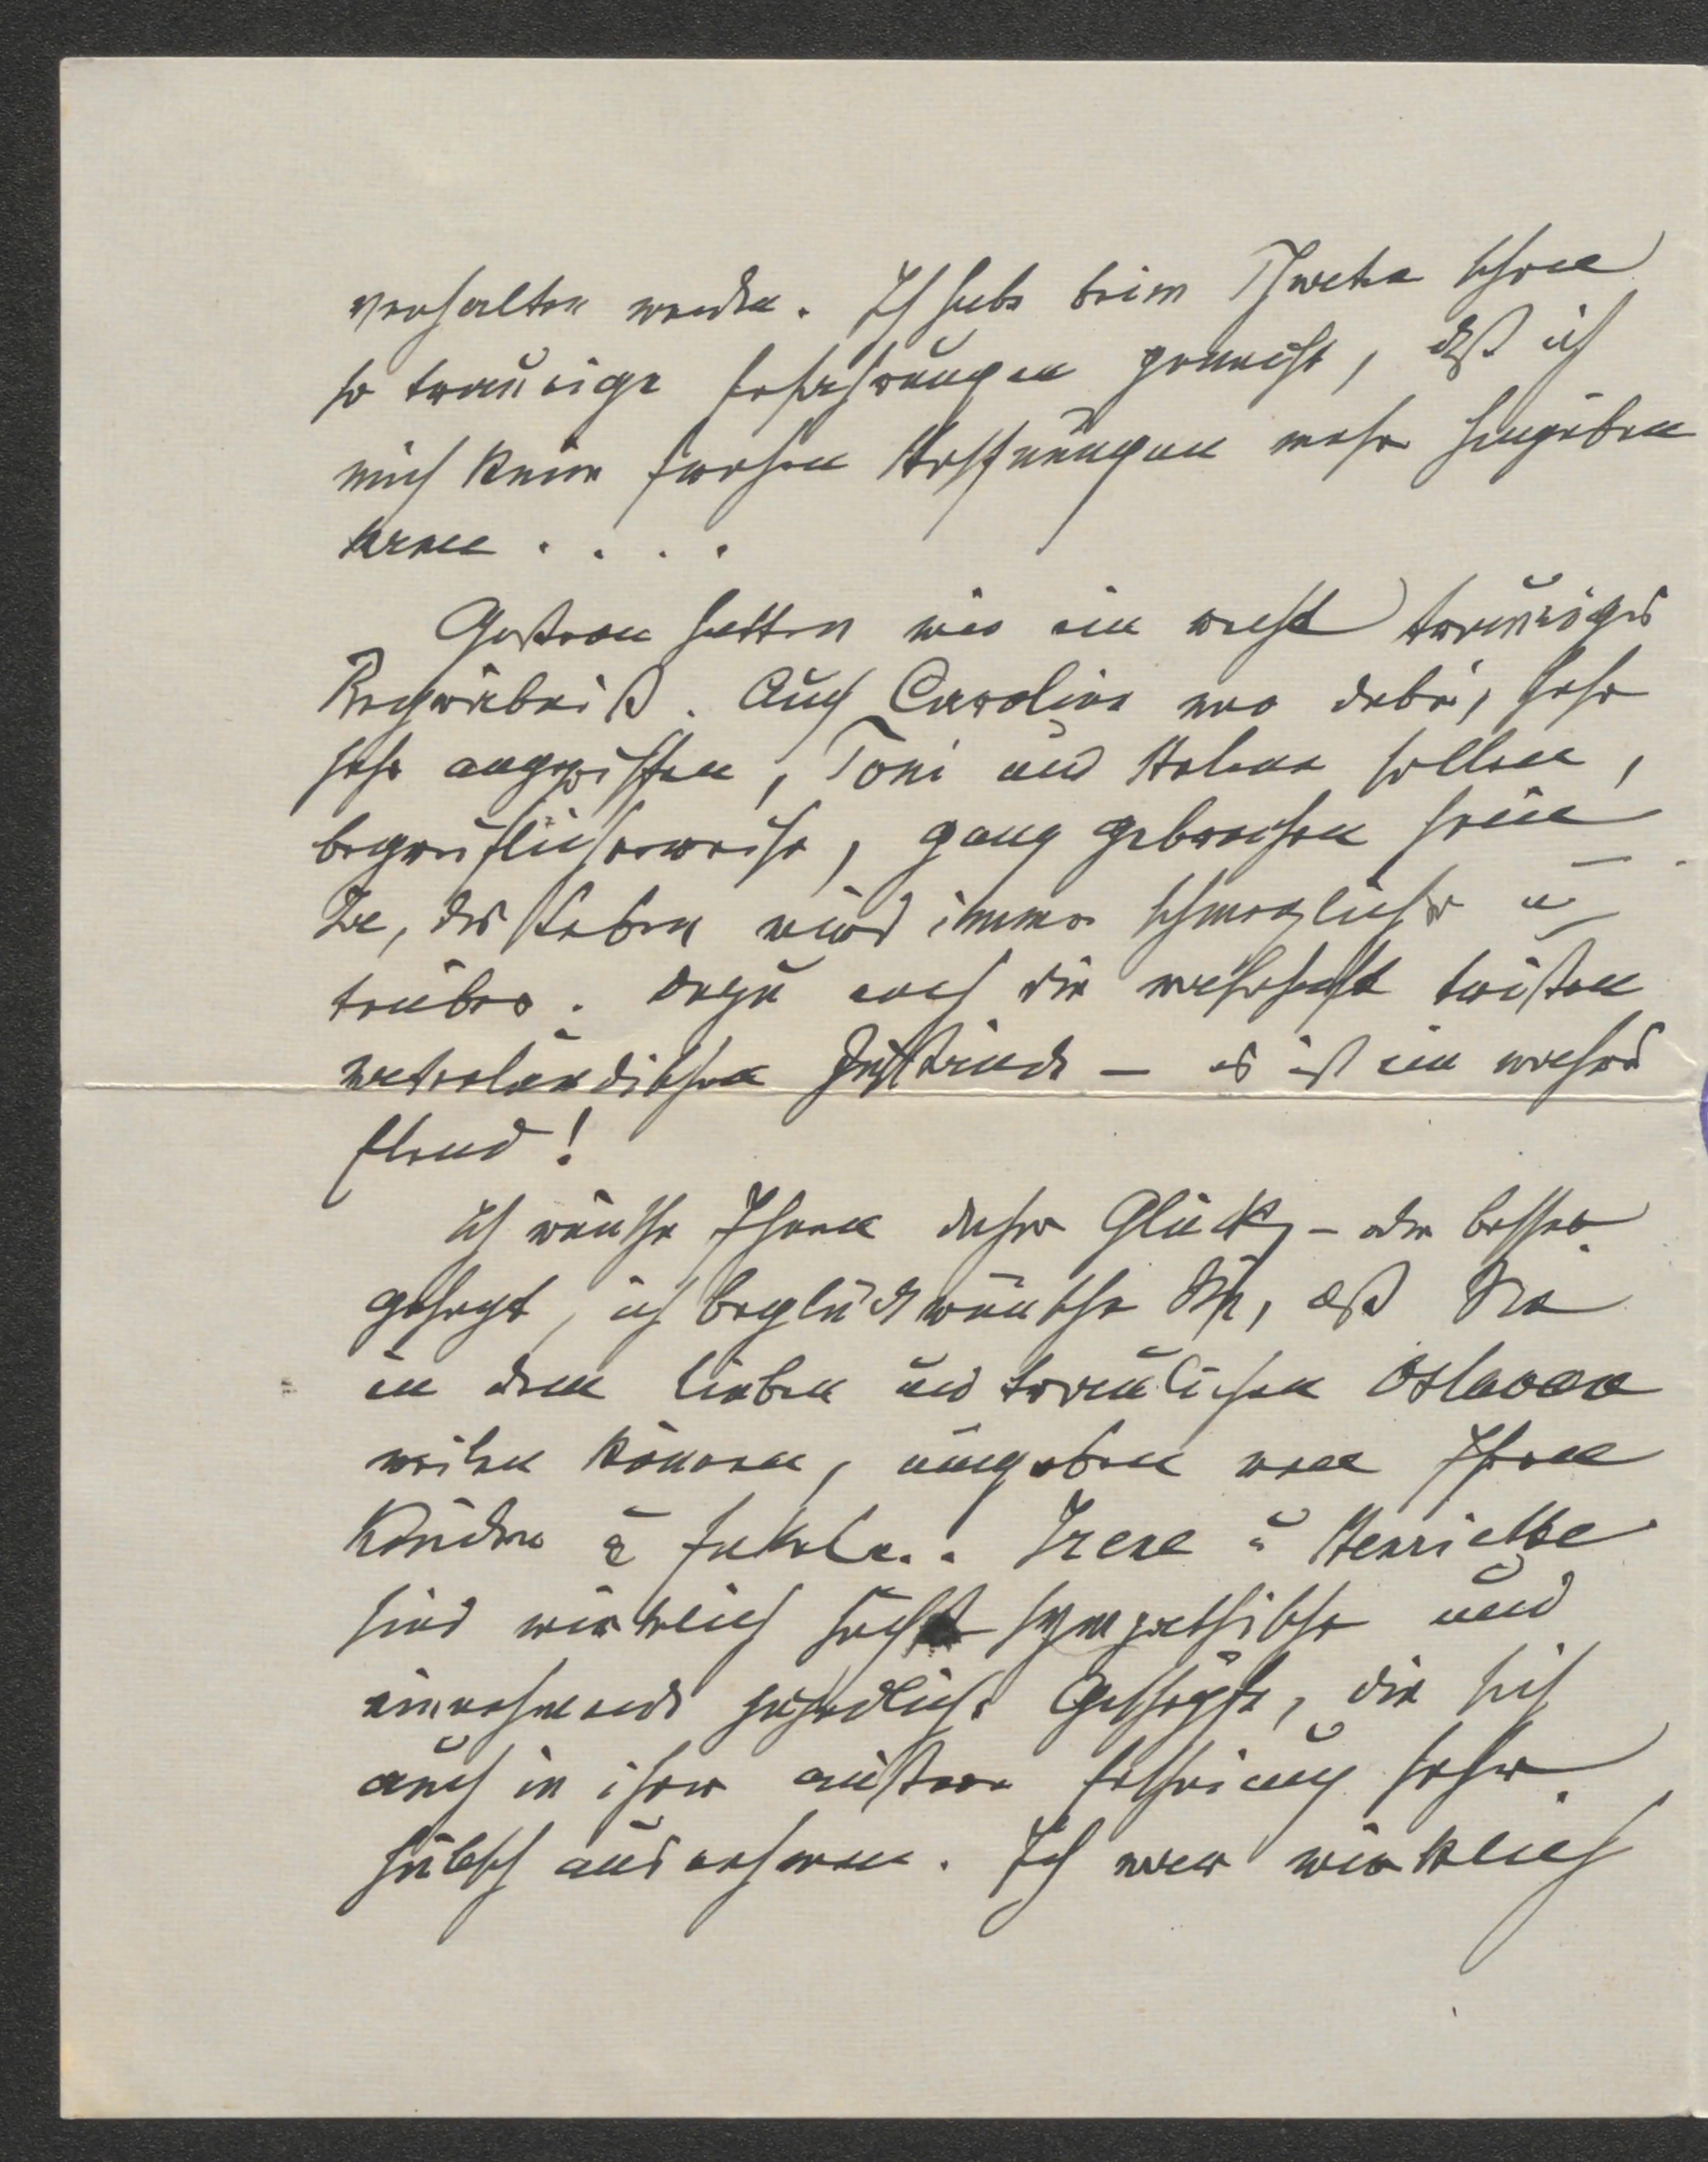 verhalten werden. Ich habe beim Theater schon
so traurige Erfahrungen gemacht, daß ich
mich keinen frohen Hoffnungen mehr hingeben
kann . . . .
Gestern hatten wir ein recht trauriges
Begräbniß. Auch Caroline war dabei, sehr
sehr angegriffen, Toni und Helene sollen,
begreiflicherweise, ganz gebrochen sein
Ja, das Leben wird immer schmerzlicher u
trüber. Dazu noch die wahrhaft tristen
vaterländischen Zustände – es ist ein wahres
Elend!
Ich wünsche Ihnen daher Glück – oder besser
gesagt, ich beglückwünsche Sie, daß Sie
in dem lieben und traulichen Oslavan
weilen können, umgeben von Ihren
Kindern u Enkeln.. Irene u Henriette
sind wirklich höchst sympathische und
einnehmende jugendliche Geschöpfe, die sich
auch in ihrer äußeren Erscheinung sehr
hübsch ausnehmen. Ich war wirklich